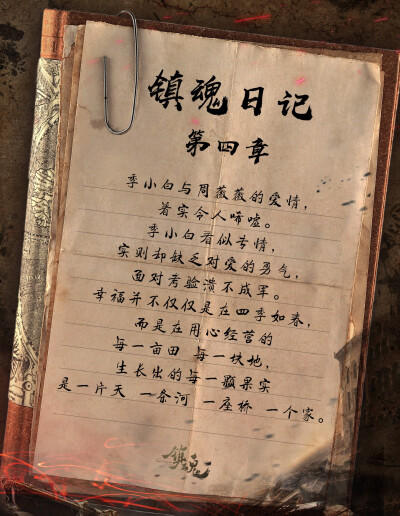 镇魂日记
第四章
李小白与周薇薇的爱情，
着实令人唏嘘。
李小白看似专情，
实则却缺乏对爱的勇气，
面对考验溃不成军。
幸福并不仅仅是在四季如春，
而是在用心经营的
每一亩田 每一块地，
生长出的每一颗果实
是一片天 一条河 一座桥 一个家。
镇魂